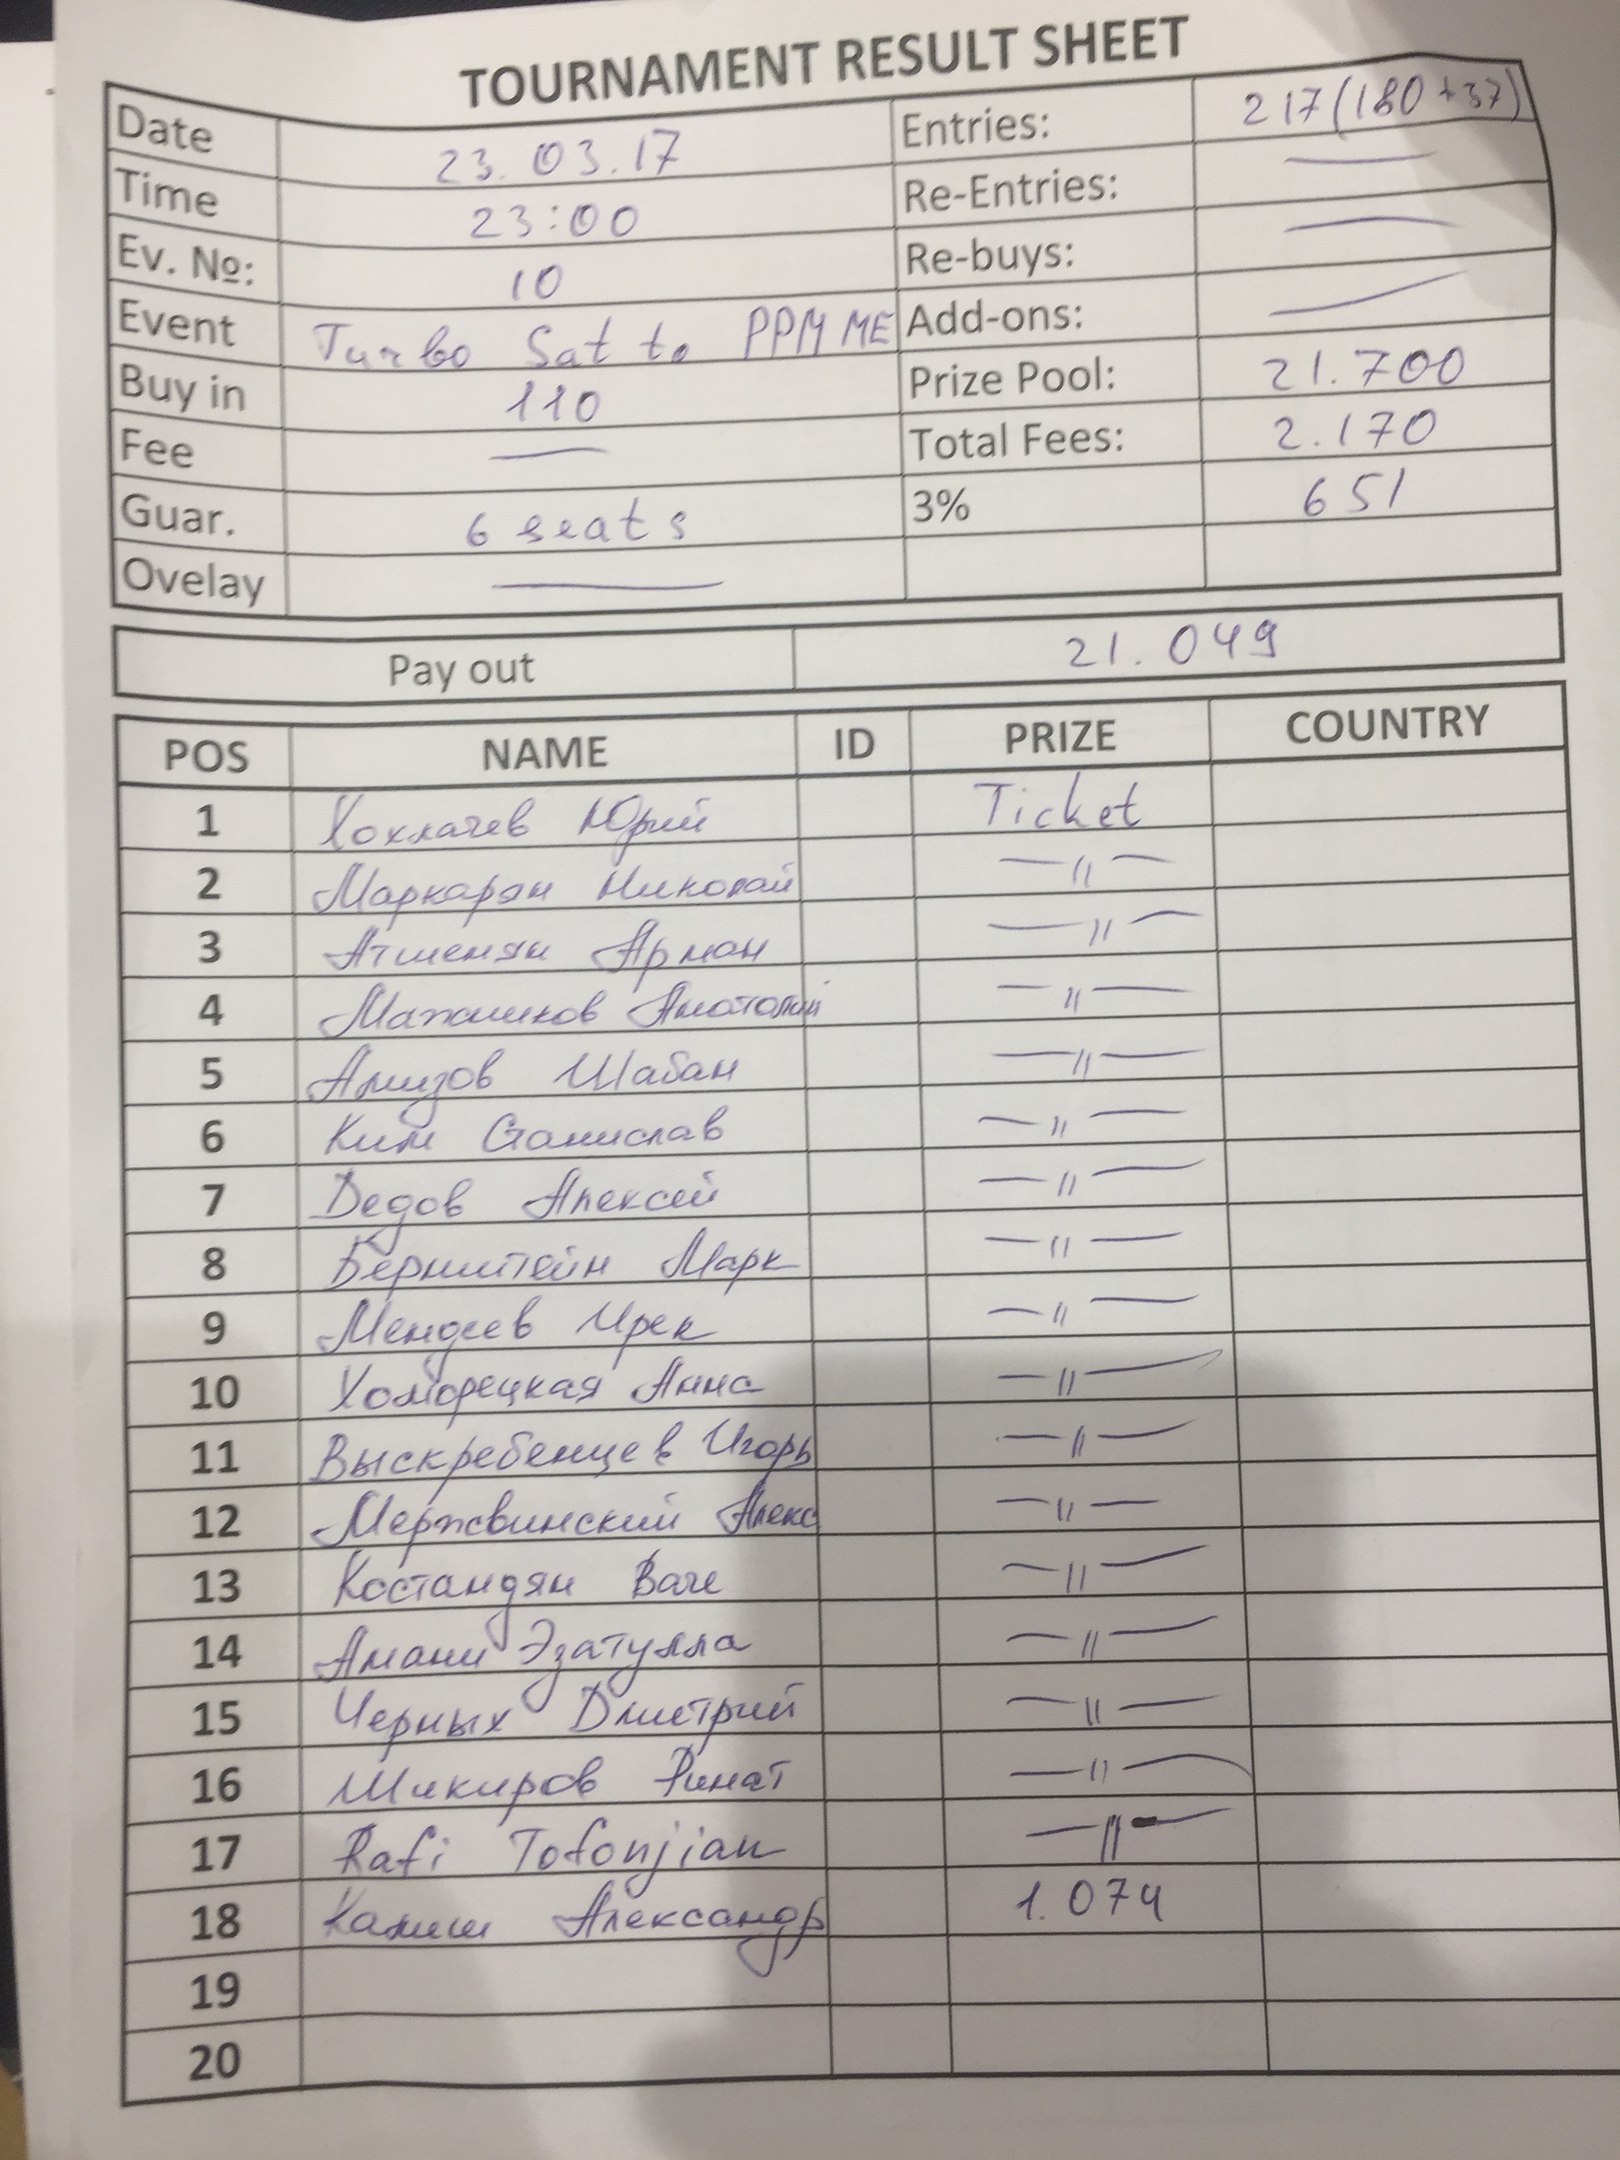 TOURNAMENT RESULT SHEET
Date 23.03.17 Entries: 217(180+37)
Time 23:00 Re-Entries: —
Ev. №: 10 Re-buys: —
Event Turbo Sat to PPM ME Add-ons: —
Buy in 110 Prize Pool: 21.700
Fee — Total Fees: 2.170
Guar. 6 seats 3% 651
Ovelay —
Pay out 21.049
POS NAME ID PRIZE COUNTRY
1 Хохлачев Юрий Ticket
2 Маркарян Николай —〃—
3 Атшемян Арман —〃—
4 Анатолий —〃—
5 Шабан —〃—
6 Ким Станислав —〃—
7 Дедов Алексей —〃—
8 Бернштейн Марк —〃—
9 Мендеев Ирек —〃—
10 Анна —〃—
11 Выскребенцев Игорь —〃—
12 Мержвинский Алекс —〃—
13 Костандян Ваче —〃—
14 Амани Эзатулла —〃—
15 Черных Дмитрий —〃—
16 Шикиров Ринат —〃—
17 Rafi Tofonjian —〃—
18 Калиш Александр 1.074
19
20